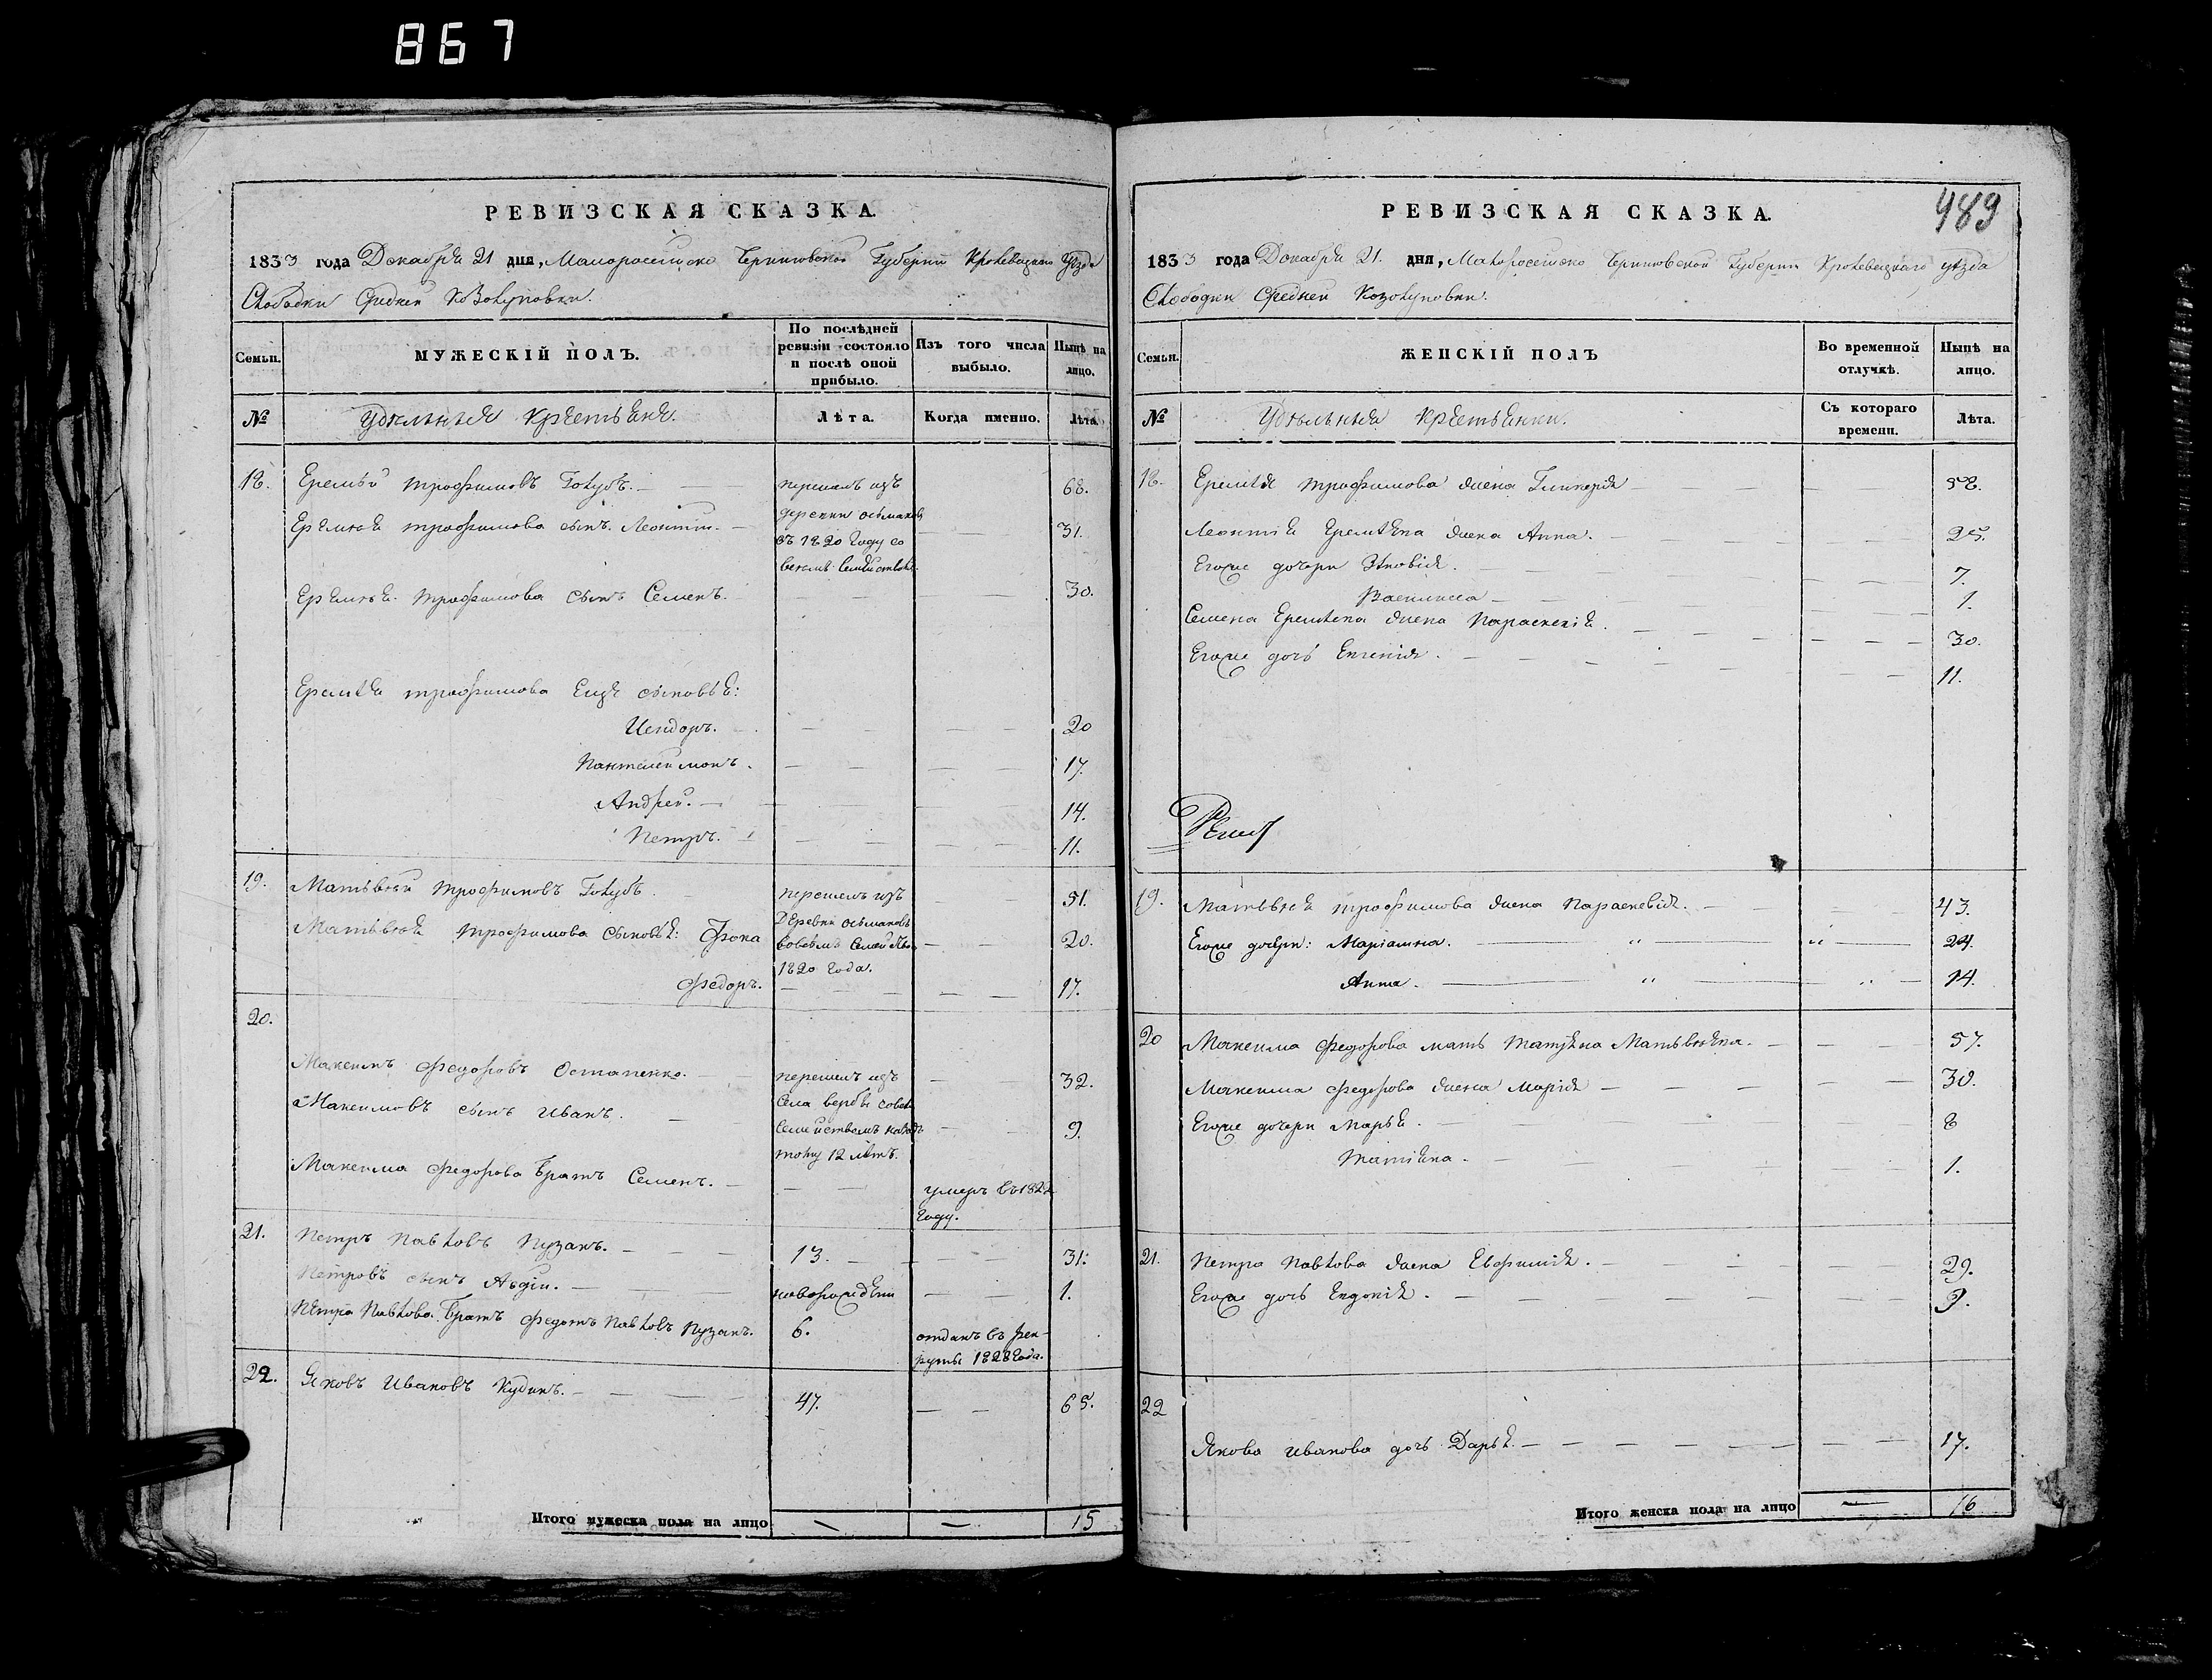 867
РЕВИЗСКАЯ СКАЗКА.
1833 года Декабря 21 дня, Малоросейско Черниговской Губерніи Кролевецкаго Уезда
Слободки Средней Козолуповки.
Семьи.
МУЖЕСКІЙ ПОЛЪ.
По послѣдней ревизіи состояло и послѣ оной прибыло.
Изъ того числа выбыло.
Нынѣ на лицо.
№
Удельныя Крестьяне.
Лѣта.
Когда именно.
Лѣта.
18. Еремѣй Трофимовъ Голубъ. перешелъ изъ 68.
Еремѣя Трофимова сынъ Леонтій. деревни Осьмаковъ 31.
въ 1820 Году со
всемъ Семействомъ.
Еремѣя Трофимова сынъ Семенъ. 30.
Еремѣя Трофимова Еще сыновья:
Исидоръ. 20
Пантелеймонъ. 17.
Андрей. 14.
Петръ. 11.
19. Матьвѣй Трофимовъ Голубъ перешелъ изъ 51.
Матьвѣя Трофимова сыновья: Фока Деревни Осьмаковъ 20.
совсѣмъ Семейством
1820 Года.
Федоръ. 17.
20.
Максимъ Федоровъ Остапенко. перешелъ изъ 32.
Максимовъ сынъ Иванъ. Села Вербы совсем 9.
Семействомъ назадъ
тому 12 лѣтъ.
Максима Федорова Братъ Семенъ. умеръ въ 1822
Году.
21. Петръ Павловъ Пузанъ. 13. 31.
Петровъ сынъ Авдій. новорожденъ 1.
Петра Павлова Братъ Федотъ Павловъ Пузанъ. 6. отданъ въ рек-
руты 1828 Года.
22. Яковъ Ивановъ Кудинъ. 47. 65.
Итого мужеска пола на лицо — — 15
489
РЕВИЗСКАЯ СКАЗКА.
1833 года Декабря 21. дня, Малоросейско Черниговской Губерніи Кролевецкаго уѣзда
Слободки Средней Козолуповки.
Семьи.
ЖЕНСКІЙ ПОЛЪ
Во временной отлучкѣ.
Нынѣ на лицо.
№
Удельныя Крестьянки.
Съ котораго времени.
Лѣта.
18. Еремѣя Трофимова жена Гликерія 58.
Леонтія Еремѣева жена Анна. 25.
Егоже дочери Зѣновія. 7.
Василиса 1.
Семена Еремѣева жена Параскевія. 30.
Егоже дочь Евгенія. 11.
19. Матьвѣя Трофимова жена Параскевія. 43.
Егоже дочери: Маріамна. 24.
Анна. 14.
20 Максима Федорова мать Татьяна Матьвѣева. 57.
Максима Федорова жена Марія 30.
Егоже дочери Марья. 8
Татіяна. 1.
21. Петра Павлова жена Евфимія. 29.
Егоже дочь Евдокія. 9.
22
Якова Иванова дочь Дарья. 17.
Итого женска пола на лицо — 16